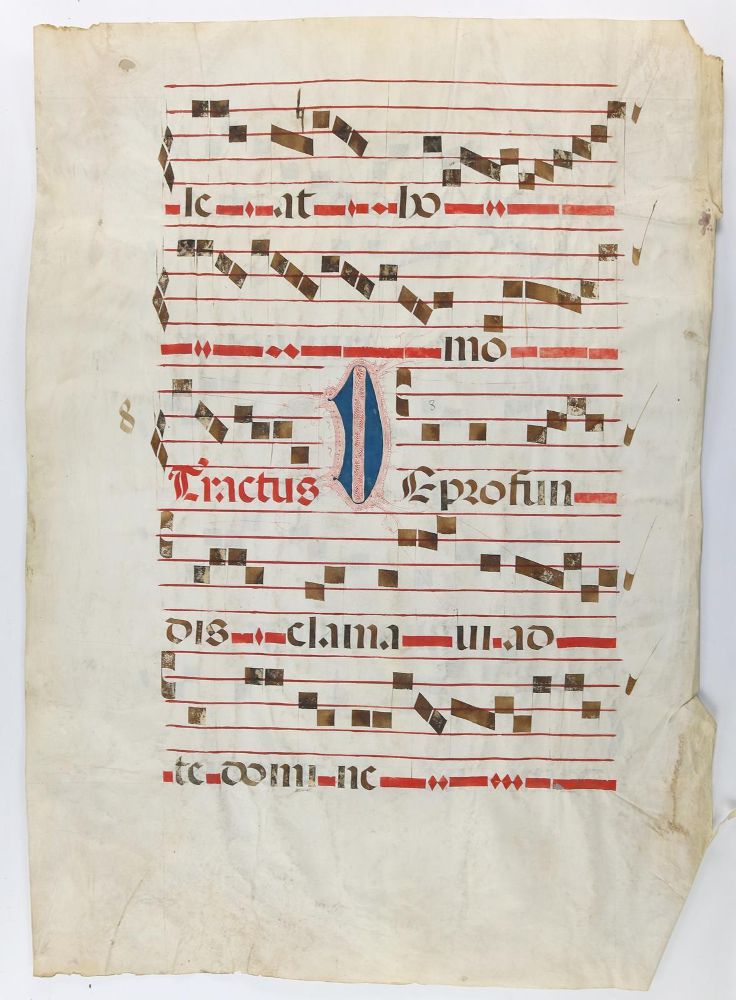 le at ho
mo
8
Tractus DEprofun
8
dis clama ui ad
te domi ne